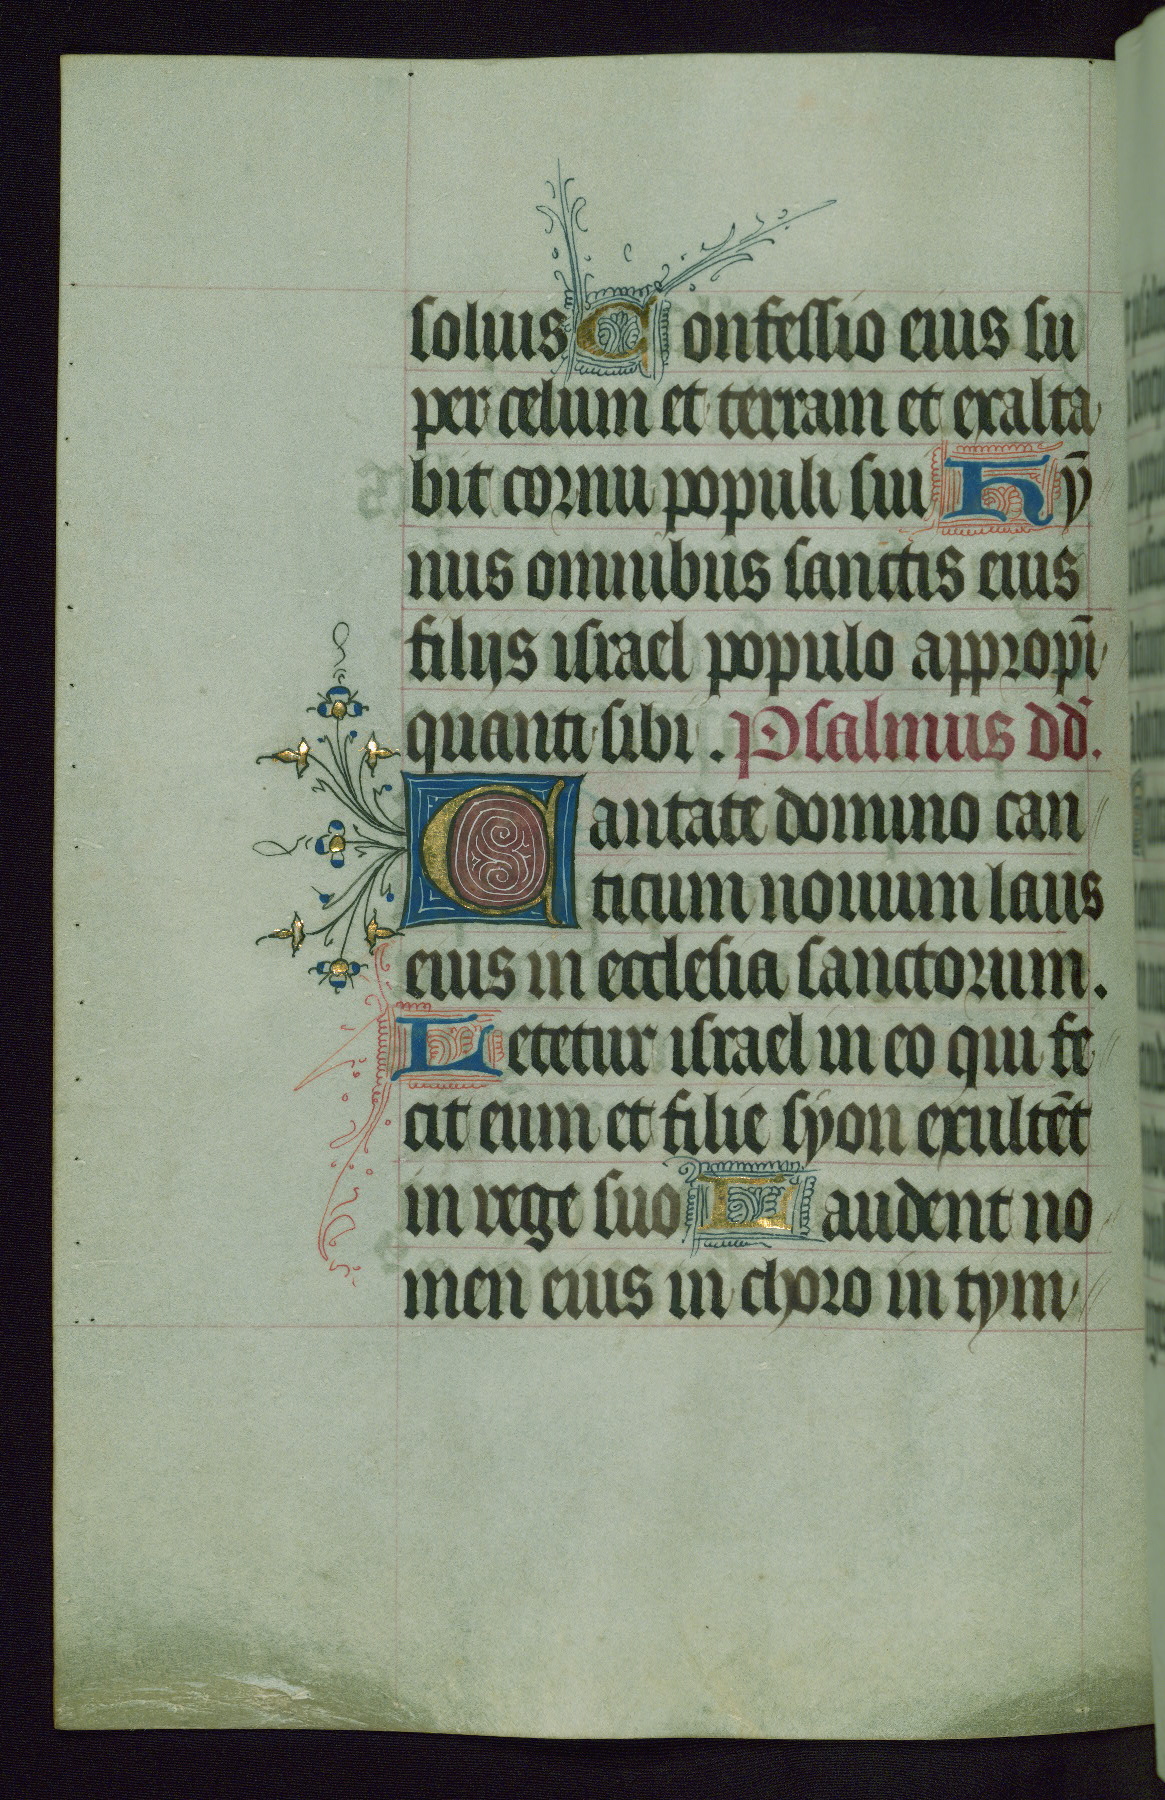 solius Confessio eius su
per celum et terram et exalta
bit cornu populi sui Hȳ
nus omnibus sanctis eius
filijs israel populo appropī
quanti sibi . Psalmus dd̄.
Cantate domino can
ticum nouum laus
eius in ecclesia sanctorum.
Letetur israel in eo qui fe
cit eum et filie syon exultēt
in rege suo Laudent no
men eius in choro in tym